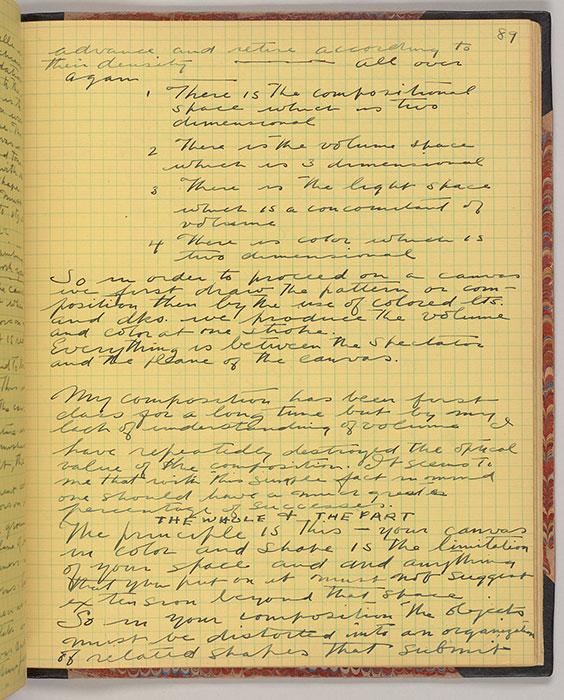 89
advance and retire according to
their density ——— all over
again
1 There is the compositional
space which is two
dimensional
2 There is the volume space
which is 3 dimensional
3 There is the light space
which is a concomitant of
volume
4 There is color which is
two dimensional
So in order to proceed on a canvas
we first draw the pattern or com-
position then by the use of colored lts.
and dks. we produce the volume
and color at one stroke.
Everything is between the spectator
and the plane of the canvas.
My composition has been first
class for a long time but by my
lack of understanding of volume I
have repeatedly destroyed the optical
value of the composition. It seems to
me that with this simple fact in mind
one should have a much greater
percentage of successes.
THE WHOLE + THE PART
The principle is this – your canvas
in color and shape is the limitation
of your space and and anything
that you put on it must not suggest
extension beyond that space
So in your composition the objects
must be distorted into an organization
of related shapes that submit